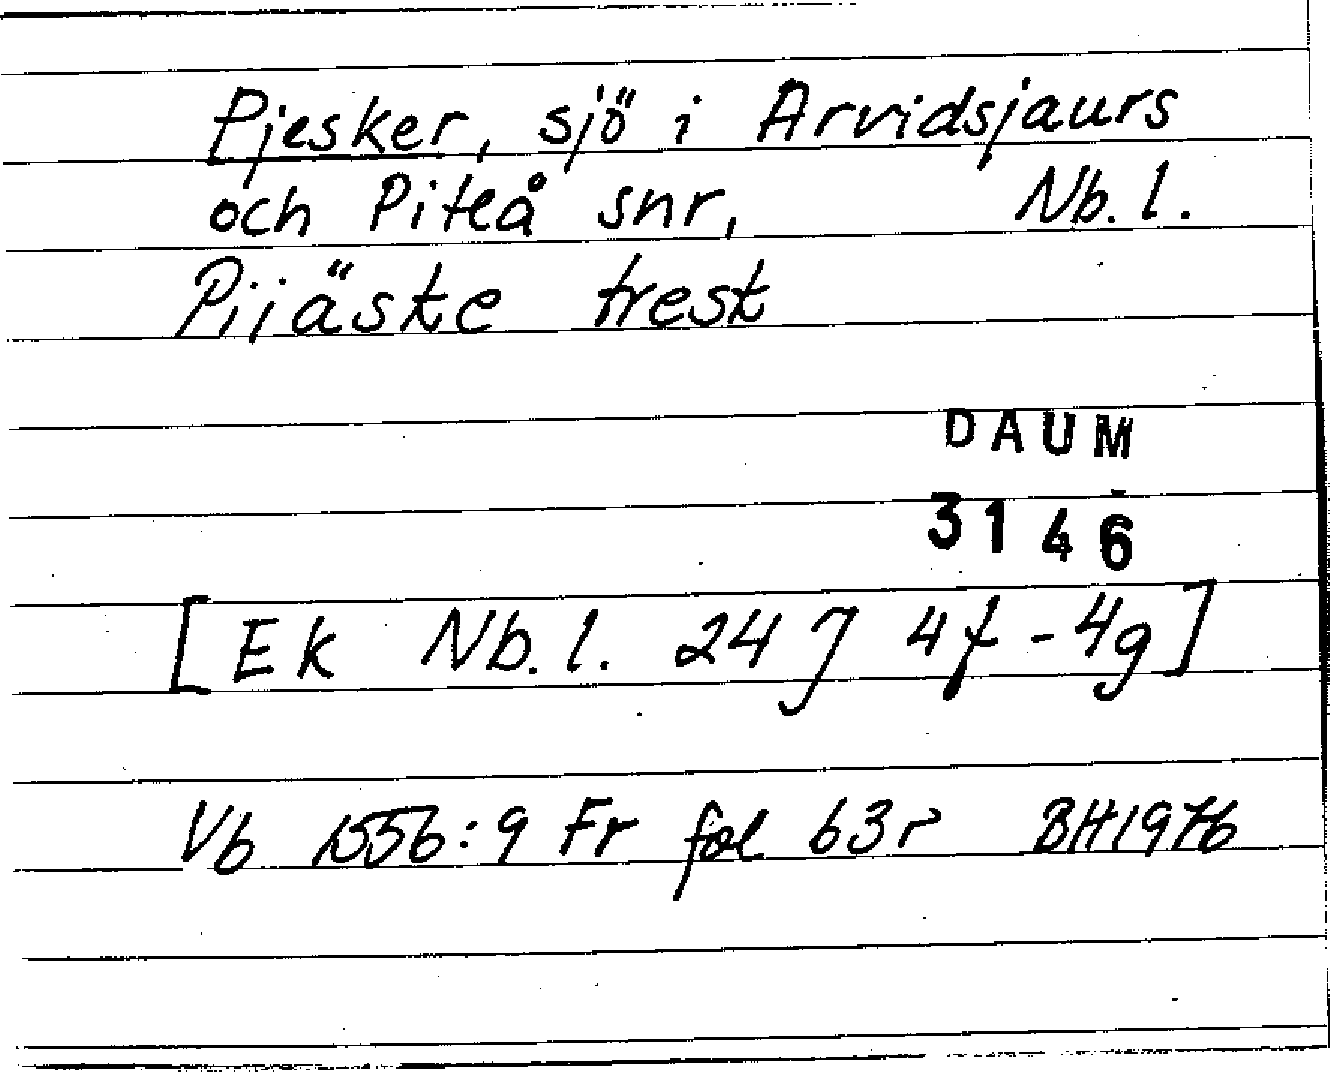 Pjesker, sjö i Arvidsjaurs
och Piteå snr, Nb. l.
Piiäste trest
DAUM
3146
[EK Nb. l. 24 J 4f - 4g]
Vb 1556:9 Fr fol 63r BH1976